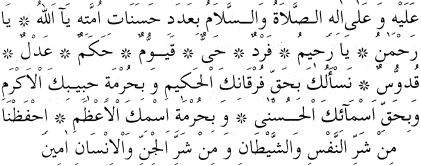 عَلَيْهِ وَ عَلٰى اٰلِهِ الصَّلَاةُ وَالسَّلَامُ بِعَدَدِ حَسَنَاتِ اُمَّتِهِ يَآ اَللّٰهُ ❊ يَا
رَحْمٰنُ ❊ يَا رَحِيمُ ❊ فَرْدٌ ❊ حَىٌّ ❊ قَيُّومٌ ❊ حَكَمٌ ❊ عَدْلٌ ❊
قُدُّوسٌ ❊ نَسْأَلُكَ بِحَقِّ فُرْقَانِكَ الْحَكِيمِ وَ بِحُرْمَةِ حَبِيبِكَ الْاَكْرَمِ
وَبِحَقِّ اَسْمَآئِكَ الْحُسْنٰى ❊ وَ بِحُرْمَةِ اِسْمِكَ الْاَعْظَمِ ❊ اِحْفَظْنَا
مِنْ شَرِّ النَّفْسِ وَالشَّيْطَانِ وَ مِنْ شَرِّ الْجِنِّ وَالْاِنْسَانِ اٰمِينَ